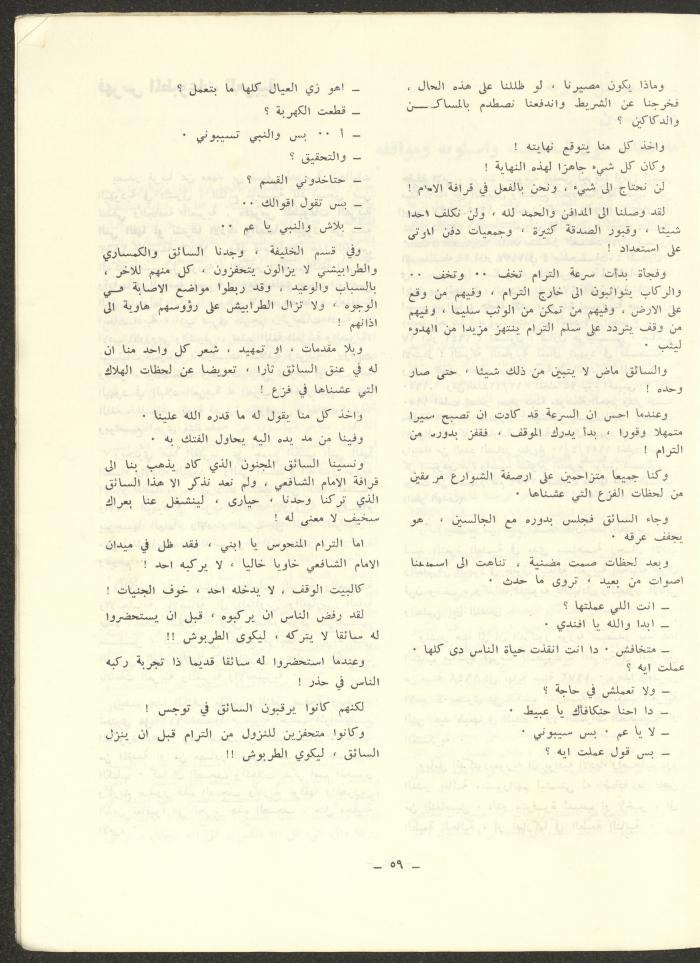 وماذا يكون مصيرنا ، لو ظللنا على هذه الحال ،
فخرجنا عن الشريط واندفعنا نصطدم بالمساكن
والدكاكين ؟
واخذ كل منا يتوقع نهايته !
وكان كل شيء جاهزا لهذه النهاية !
لن نحتاج الى شيء ، ونحن بالفعل في قرافة الامام !
لقد وصلنا الى المدافن والحمد لله ، ولن نكلف احدا
شيئا ، وقبور الصدقة كثيرة ، وجمعيات دفن الموتى
على استعداد !
وفجأة بدأت سرعة الترام تخف ٠٠ وتخف ٠٠
والركاب يتواثبون الى خارج الترام ، وفيهم من وقع
على الارض ، وفيهم من تمكن من الوثب سليما ، وفيهم
من وقف يتردد على سلم الترام ينتهز مزيدا من الهدوء
ليثب ٠
والسائق ماض لا يتبين من ذلك شيئا ، حتى صار
وحده !
وعندما احس ان السرعة قد كادت ان تصبح سيرا
متمهلا وقورا ، بدأ يدرك الموقف ، فقفز بدوره من
الترام !
وكنا جميعا متزاحمين على ارصفة الشوارع مرهقين
من لحظات الفزع التي عشناها ٠
وجاء السائق فجلس بدوره مع الجالسين ، هو
يجفف عرقه ٠
وبعد لحظات صمت مضنية ، تناهت الى اسماعنا
اصوات من بعيد ، تروى ما حدث ٠
ــ انت اللي عملتها ؟
ــ ابدا والله يا افندي ٠
ــ متخافش ٠ دا انت انقذت حياة الناس دى كلها ٠
عملت ايه ؟
ــ ولا تعملش في حاجة ؟
ــ دا احنا حنكافأك يا عبيط ٠
ــ لا يا عم ٠ بس سيبوني ٠
ــ بس قول عملت ايه ؟
ــ اهو زي العيال كلها ما بتعمل ؟
ــ قطعت الكهربة ؟
ــ أ ٠٠ بس والنبي تسيبوني ٠
ــ والتحقيق ؟
ــ حتاخدوني القسم ؟
ــ بس تقول اقوالك ٠٠
ــ بلاش والنبي يا عم ٠٠
وفي قسم الخليفة ، وجدنا السائق والكمساري
والطرابيشي لا يزالون يتحفزون ، كل منهم للاخر ،
بالسباب والوعيد ، وقد ربطوا مواضع الاصابة في
الوجوه ، ولا تزال الطرابيش على رؤوسهم هاوية الى
اذانهم !
وبلا مقدمات ، او تمهيد ، شعر كل واحد منا ان
له في عنق السائق ثأرا ، تعويضا عن لحظات الهلاك
التي عشناها في فزع !
واخذ كل منا يقول له ما قدره الله علينا ٠
وفينا من مد يده اليه يحاول الفتك به ٠
ونسينا السائق المجنون الذي كاد يذهب بنا الى
قرافة الامام الشافعي ، ولم نعد نذكر الا هذا السائق
الذي تركنا وحدنا ، حيارى ، لينشغل عنا بعراك
سخيف لا معنى له !
اما الترام المنحوس يا ابني ، فقد ظل في ميدان
الامام الشافعي خاويا خاليا ، لا يركبه احد !
كالبيت الوقف ، لا يدخله احد ، خوف الجنيات !
لقد رفض الناس ان يركبوه ، قبل ان يستحضروا
له سائقا لا يتركه ، ليكوى الطربوش !!
وعندما استحضروا له سائقا قديما ذا تجربة ركبه
الناس في حذر !
لكنهم كانوا يرقبون السائق في توجس !
وكانوا متحفزين للنزول من الترام قبل ان ينزل
السائق ، ليكوي الطربوش !!
ــ ٥٩ ــ